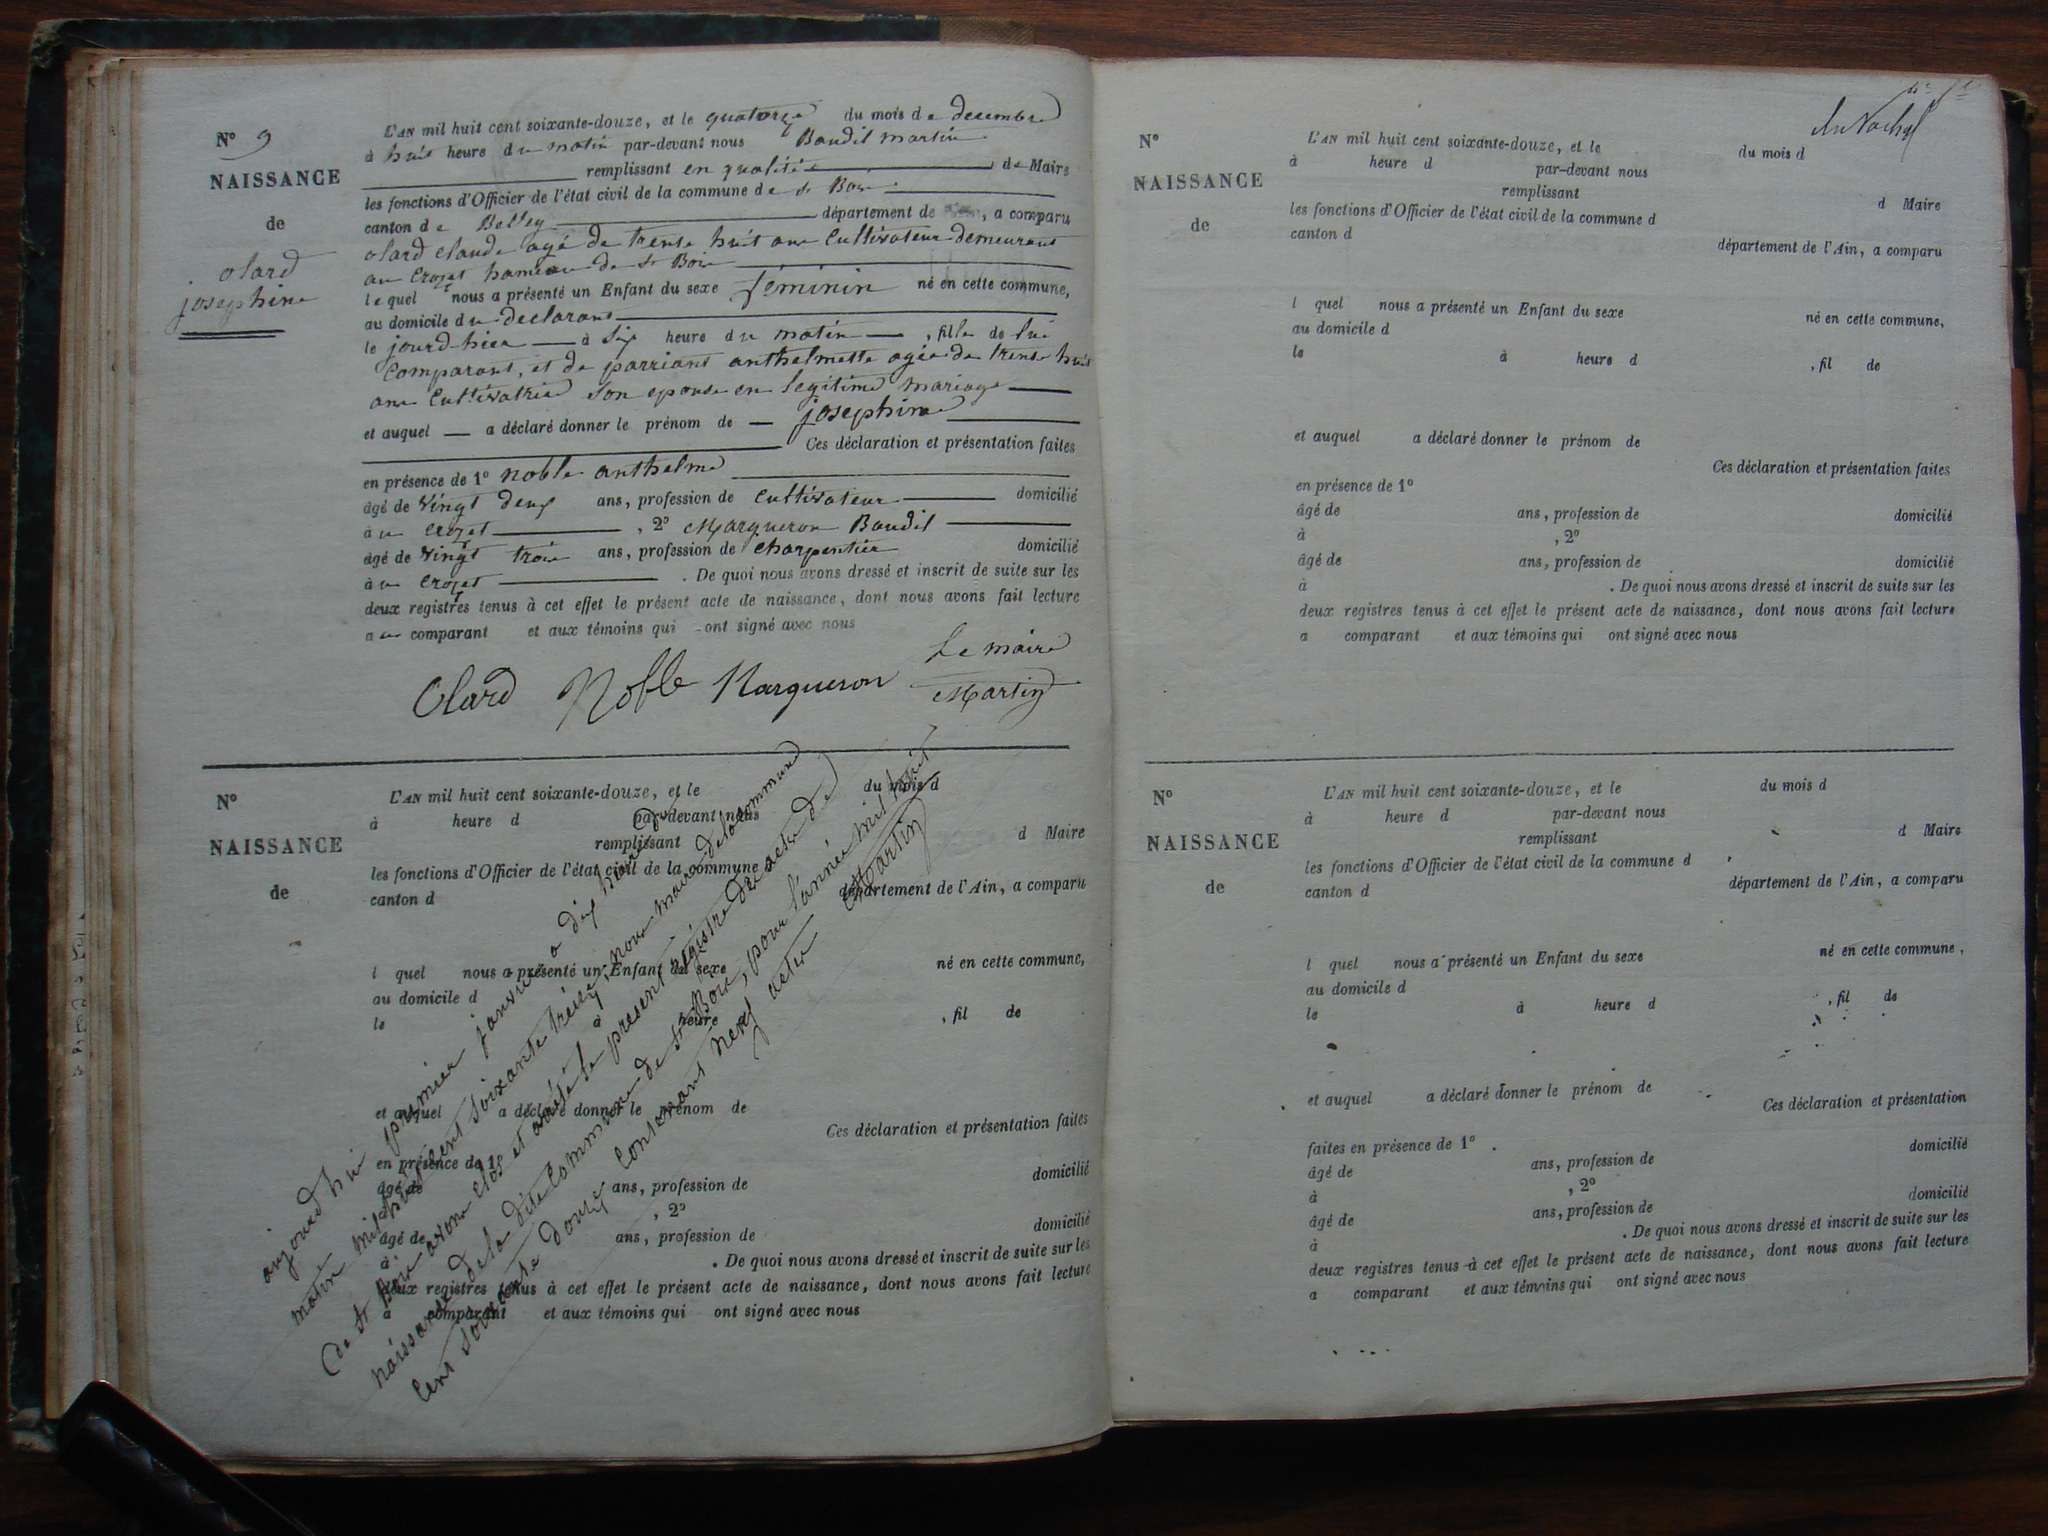 N° 9
NAISSANCE
de
olard
josephine
L'AN mil huit cent soixante-douze, et le quatorze du mois de decembre
à huit heure du matin par-devant nous Baudit martin
remplissant en qualité de Maire
les fonctions d'Officier de l'état civil de la commune de st Bois
canton de Belley département de , a comparu
olard claude agé de trente huit ans Cultivateur demeurant
au Crozet hameau de st Bois
lequel nous a présenté un Enfant du sexe féminin né en cette commune,
au domicile du declarant
le jourd-hier à six heure du matin , fille de lui
Comparant, et de parriant anthelmette agée de trente huit
ans Cultivatrice son epouse en legitime mariage
et auquel a déclaré donner le prénom de josephine
Ces déclaration et présentation faites
en présence de 1° noble anthelme
âgé de vingt deux ans, profession de Cultivateur domicilié
à u Crozet , 2° Marqueron Baudit
âgé de vingt trois ans, profession de charpentier domicilié
à u Crozet . De quoi nous avons dressé et inscrit de suite sur les
deux registres tenus à cet effet le présent acte de naissance, dont nous avons fait lecture
au comparant et aux témoins qui ont signé avec nous
Le maire
Olard Noble Marqueron Martin
N°
NAISSANCE
de
L'AN mil huit cent soixante-douze, et le du mois d
à heure d par-devant nous
remplissant d Maire
les fonctions d'Officier de l'état civil de la commune
canton d département de l'Ain, a comparu
l quel nous a présenté un Enfant du sexe né en cette commune,
au domicile d
le à heure d , fil de
et auquel a déclaré donner le prénom de
Ces déclaration et présentation faites
en présence de 1°
âgé de ans, profession de domicilié
à , 2°
âgé de ans, profession de domicilié
à . De quoi nous avons dressé et inscrit de suite sur les
deux registres tenus à cet effet le présent acte de naissance, dont nous avons fait lecture
a comparant et aux témoins qui ont signé avec nous
aujourd'hui premier janvier a dix heure du
matin mil huit cent soixante treize, nous maire de la commune
de st Bois avons clos et arrêté le present régistre des acte de
naissance de la dite Commune de st Bois, pour l'année mil huit
Cent soixante douze Contenant neuf actes Martin
N°
NAISSANCE
de
L'AN mil huit cent soixante-douze, et le du mois d
à heure d par-devant nous
remplissant d Maire
les fonctions d'Officier de l'état civil de la commune d
canton d département de l'Ain, a comparu
l quel nous a présenté un Enfant du sexe né en cette commune,
au domicile d
le à heure d , fil de
et auquel a déclaré donner le prénom de
Ces déclaration et présentation faites
en présence de 1°
âgé de ans, profession de domicilié
à , 2°
âgé de ans, profession de domicilié
à . De quoi nous avons dressé et inscrit de suite sur les
deux registres tenus à cet effet le présent acte de naissance, dont nous avons fait lecture
a comparant et aux témoins qui ont signé avec nous
N°
NAISSANCE
de
L'AN mil huit cent soixante-douze, et le du mois d
à heure d par-devant nous
remplissant d Maire
les fonctions d'Officier de l'état civil de la commune d
canton d département de l'Ain, a comparu
l quel nous a présenté un Enfant du sexe né en cette commune,
au domicile d
le à heure d , fil de
et auquel a déclaré donner le prénom de
Ces déclaration et présentation
faites en présence de 1° domicilié
âgé de ans, profession de
à , 2° domicilié
âgé de ans, profession de
à . De quoi nous avons dressé et inscrit de suite sur les
deux registres tenus à cet effet le présent acte de naissance, dont nous avons fait lecture
a comparant et aux témoins qui ont signé avec nous